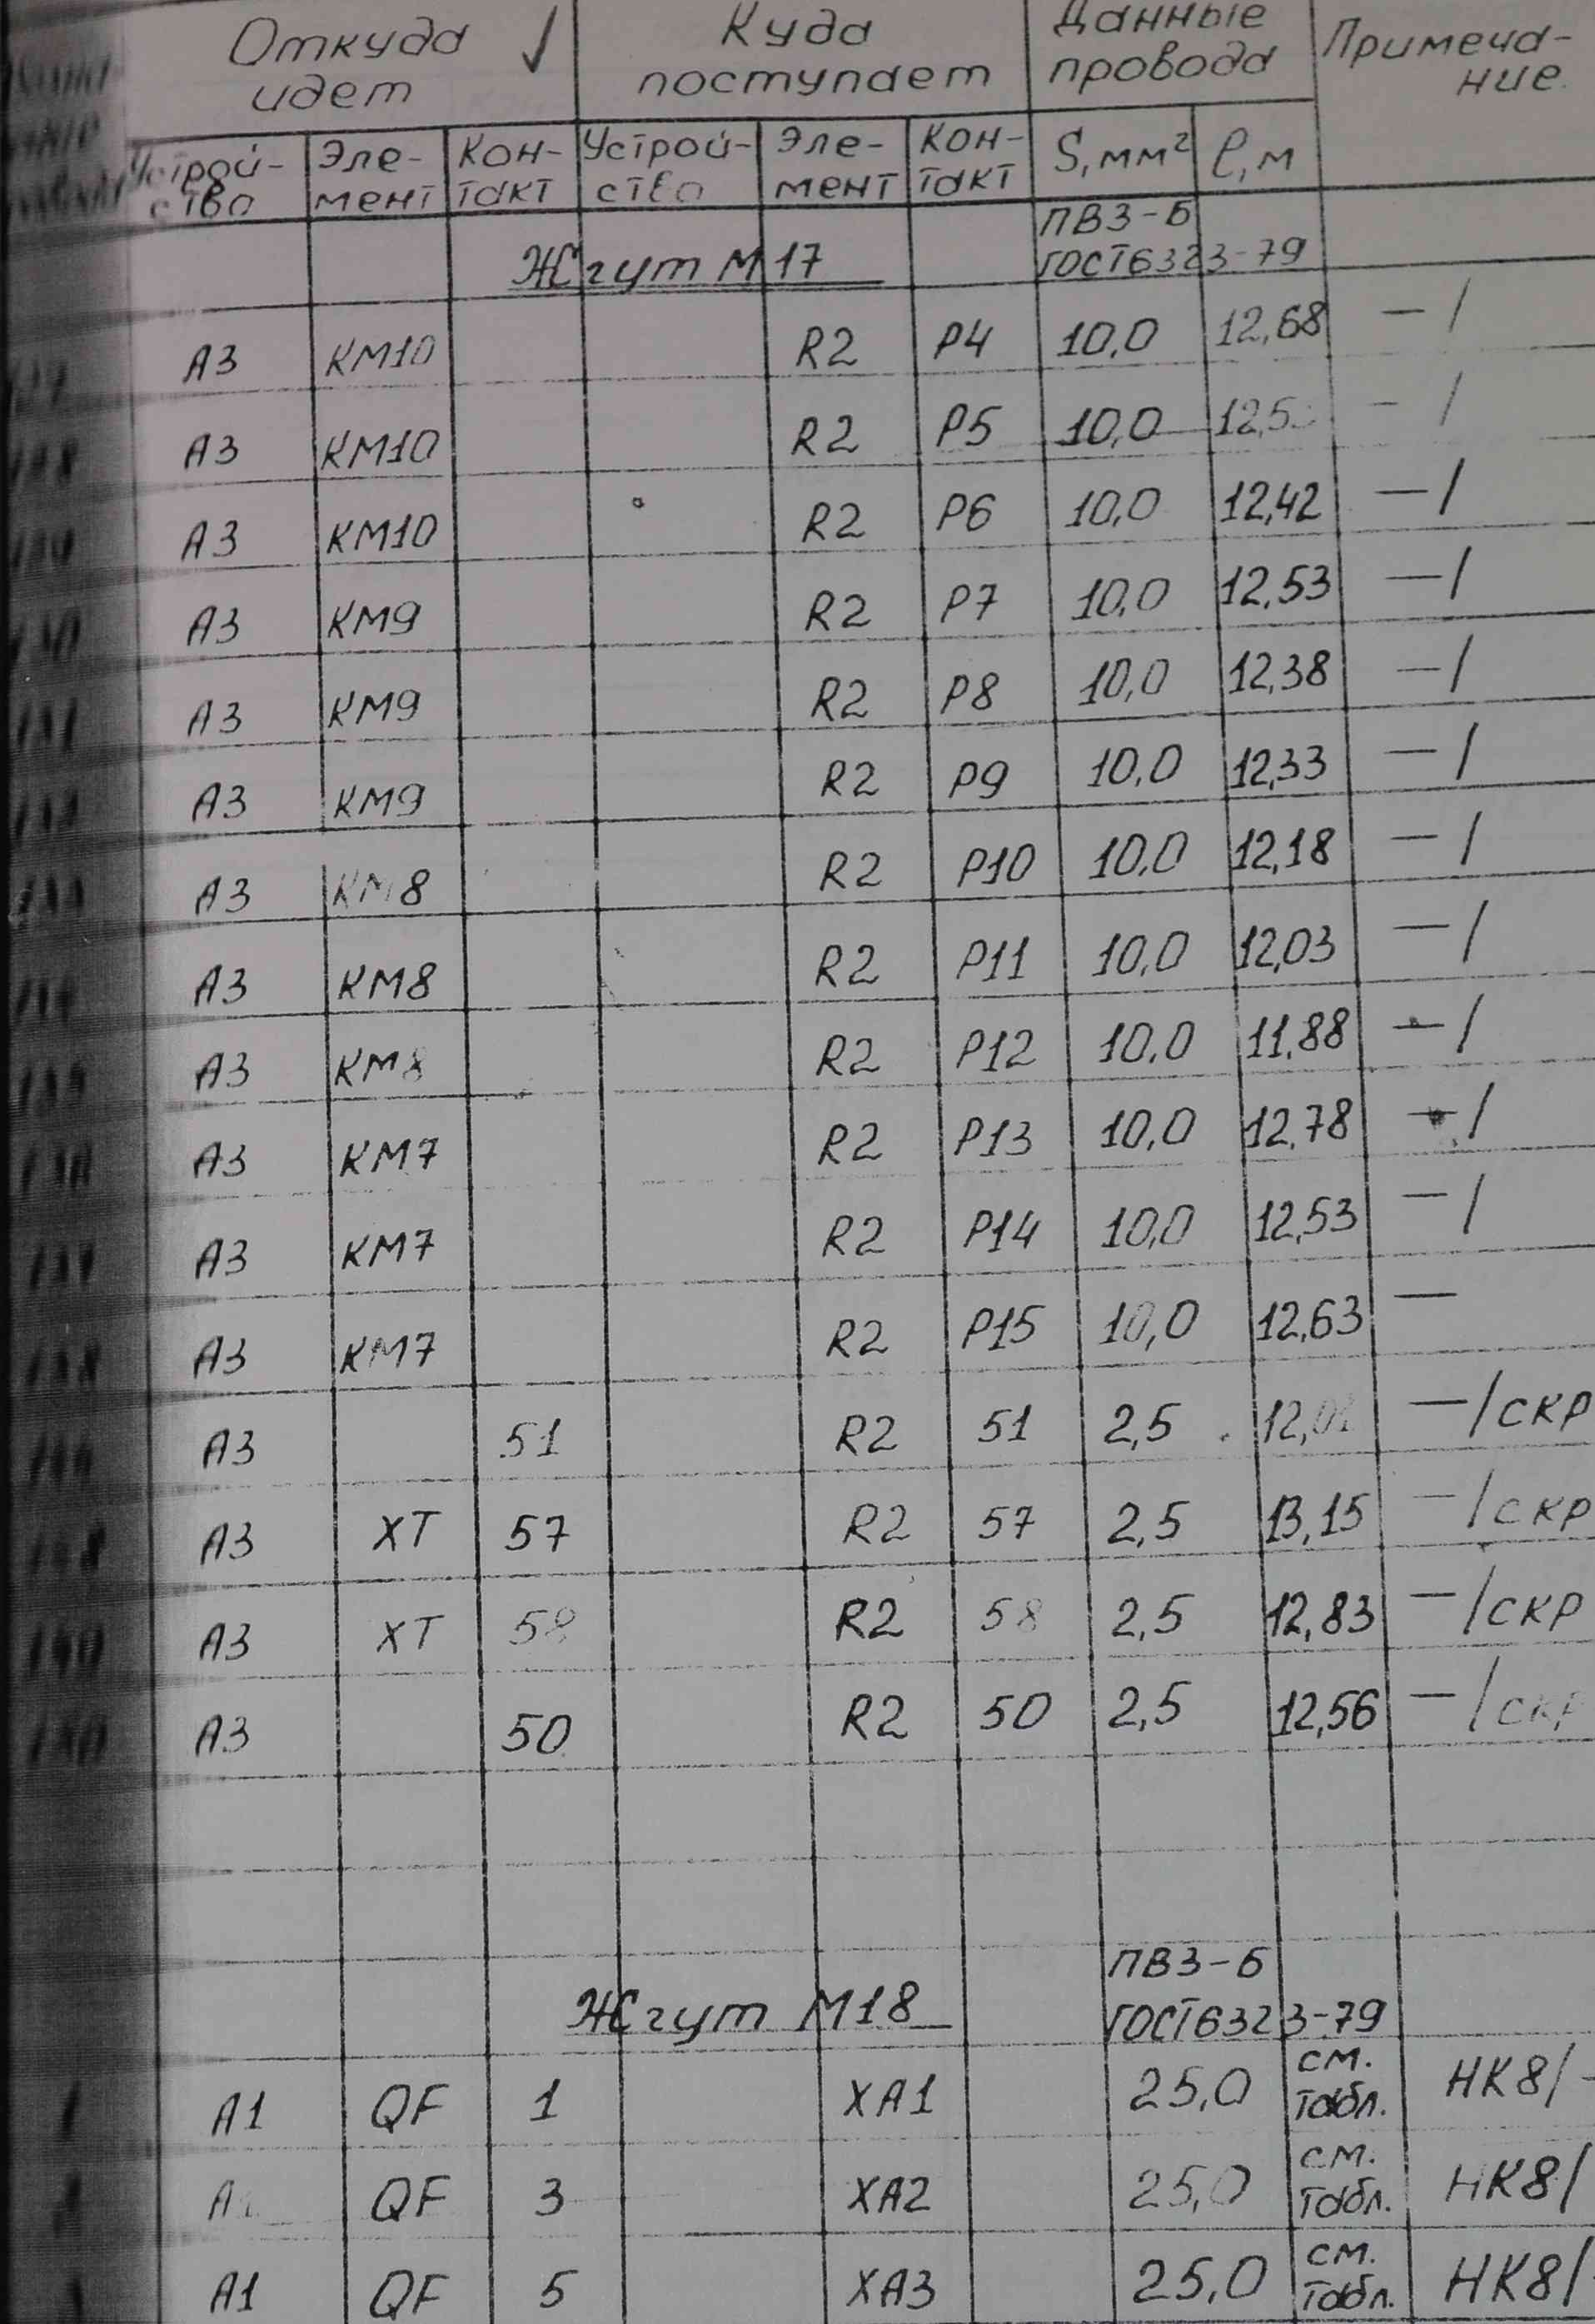 Откуда идет Куда поступает Данные провода Примеча-ние.
Устрой-ство Эле-мент Кон-такт Устрой-ство Эле-мент Кон-такт S, мм² ℓ, м
ПВ3-Б
Жгут М17 ГОСТ6323-79
А3 КМ10 R2 Р4 10,0 12,68 —/
А3 КМ10 R2 Р5 10,0 —/
А3 КМ10 R2 Р6 10,0 12,42 —/
А3 КМ9 R2 Р7 10,0 12,53 —/
А3 КМ9 R2 Р8 10,0 12,38 —/
А3 КМ9 R2 Р9 10,0 12,33 —/
А3 КМ8 R2 Р10 10,0 12,18 —/
А3 КМ8 R2 Р11 10,0 12,03 —/
А3 КМ8 R2 Р12 10,0 11,88 —/
А3 КМ7 R2 Р13 10,0 12,78 —/
А3 КМ7 R2 Р14 10,0 12,53 —/
А3 КМ7 R2 Р15 10,0 12,63 —
А3 51 R2 51 2,5 —/СКР
А3 ХТ 57 R2 57 2,5 13,15 —/СКР
А3 ХТ 58 R2 58 2,5 12,83 —/СКР
А3 50 R2 50 2,5 12,56 —/СКР
ПВ3-Б
Жгут М18 ГОСТ6323-79
А1 QF 1 ХА1 25,0 см. табл. НК8/-
QF 3 ХА2 25,0 см. табл. НК8/
А1 QF 5 ХА3 25,0 см. табл. НК8/-